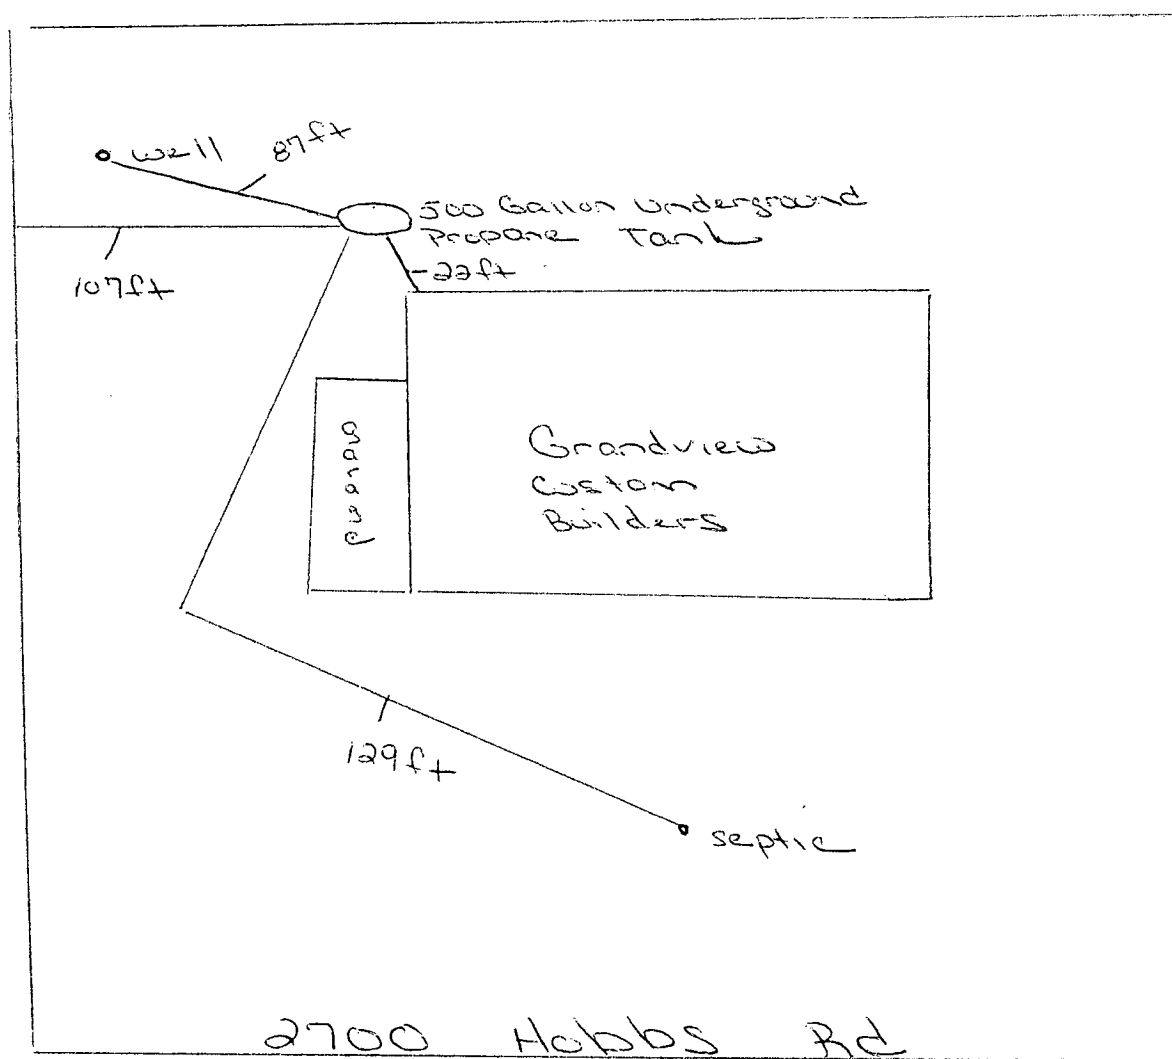 well
87ft
500 Gallon Underground
Propane Tank
22ft
107ft
garage
Grandview
Custom
Builders
129ft
septic
2700 Hobbs Rd